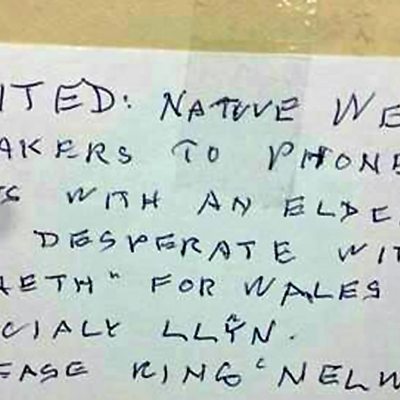 ITED: NATIVE WE
AKERS TO PHONE
WITH AN ELDE
DESPERATE WIT
AETH" FOR WALES
CIALY LLŶN.
EASE RING "NELW